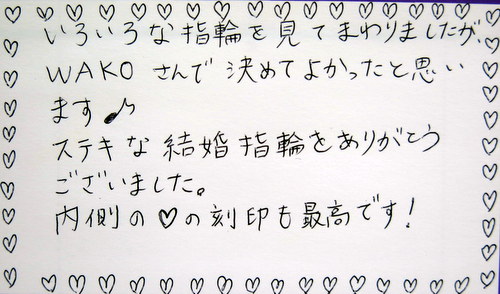 いろいろな指輪を見てまわりましたが、
WAKOさんで決めてよかったと思い
ます♪
ステキな結婚指輪をありがとう
ございました。
内側の♡の刻印も最高です!